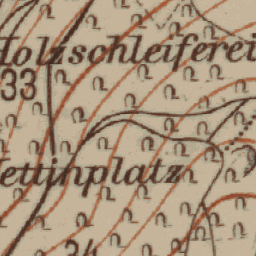 Holzschleiferei
33
Wettinplatz
34